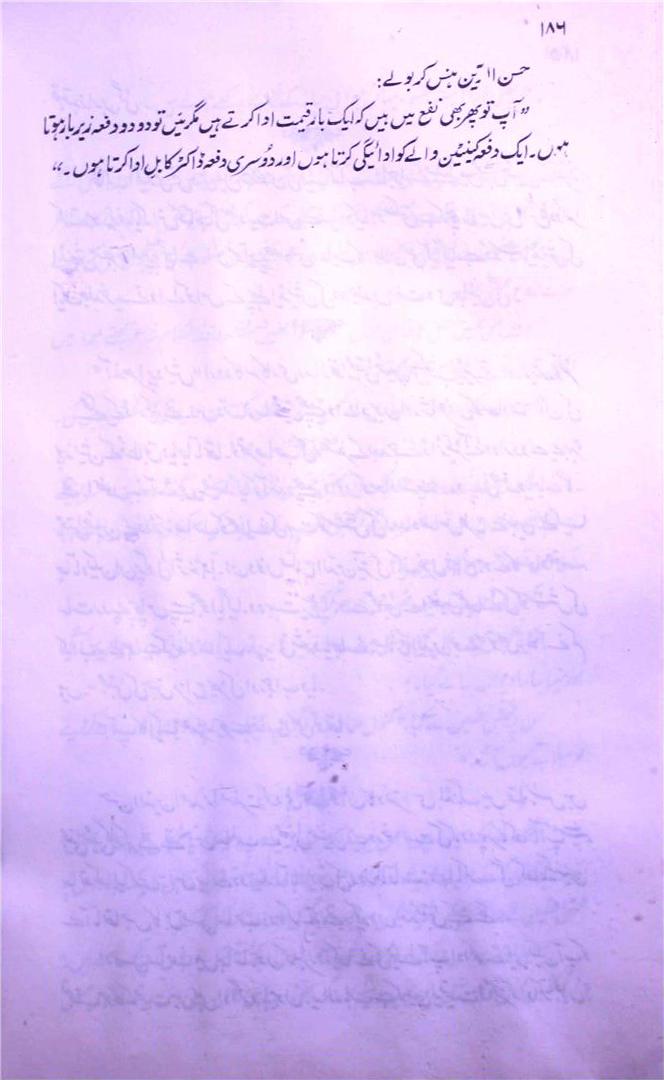 ۱۸۶
حسن الدین ہنس کر بولے:
”آپ تو پھر بھی نفع میں ہیں کہ ایک بار قیمت ادا کرتے ہیں مگر میں تو دو دو دفعہ زیر بار ہوتا
ہوں۔ ایک دفعہ کینٹین والے کو ادائیگی کرتا ہوں اور دُوسری دفعہ ڈاکٹر کا بل ادا کرتا ہوں۔“